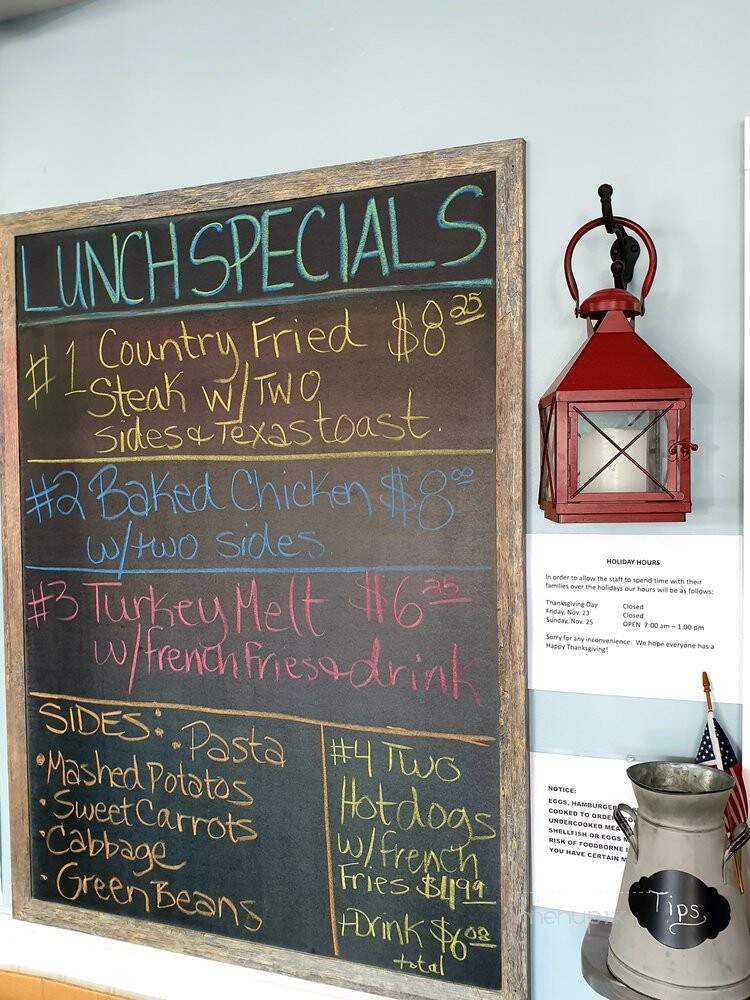 LUNCH SPECIALS
#1 Country Fried $8 25
Steak w/ TWO
sides & Texas toast.
#2 Baked Chicken $8 00
w/two sides.
#3 Turkey Melt $6 25
w/french fries & drink
SIDES:
• Pasta
• Mashed Potatos
• Sweet Carrots
• Cabbage
• Green Beans
#4 Two
Hotdogs
w/french
Fries $4.99
+Drink $6 08
total
HOLIDAY HOURS
In order to allow the staff to spend time with their
families over the holidays our hours will be as follows:
Thanksgiving Day Closed
Friday, Nov. 23 Closed
Sunday, Nov. 25 OPEN 7:00 am – 1:00 pm
Sorry for any inconvenience. We hope everyone has a
Happy Thanksgiving!
NOTICE:
EGGS, HAMBURGER
COOKED TO ORDER
UNDERCOOKED
SHELLFISH OR EGGS
RISK OF FOODBORNE
YOU HAVE CERTAIN
Tips